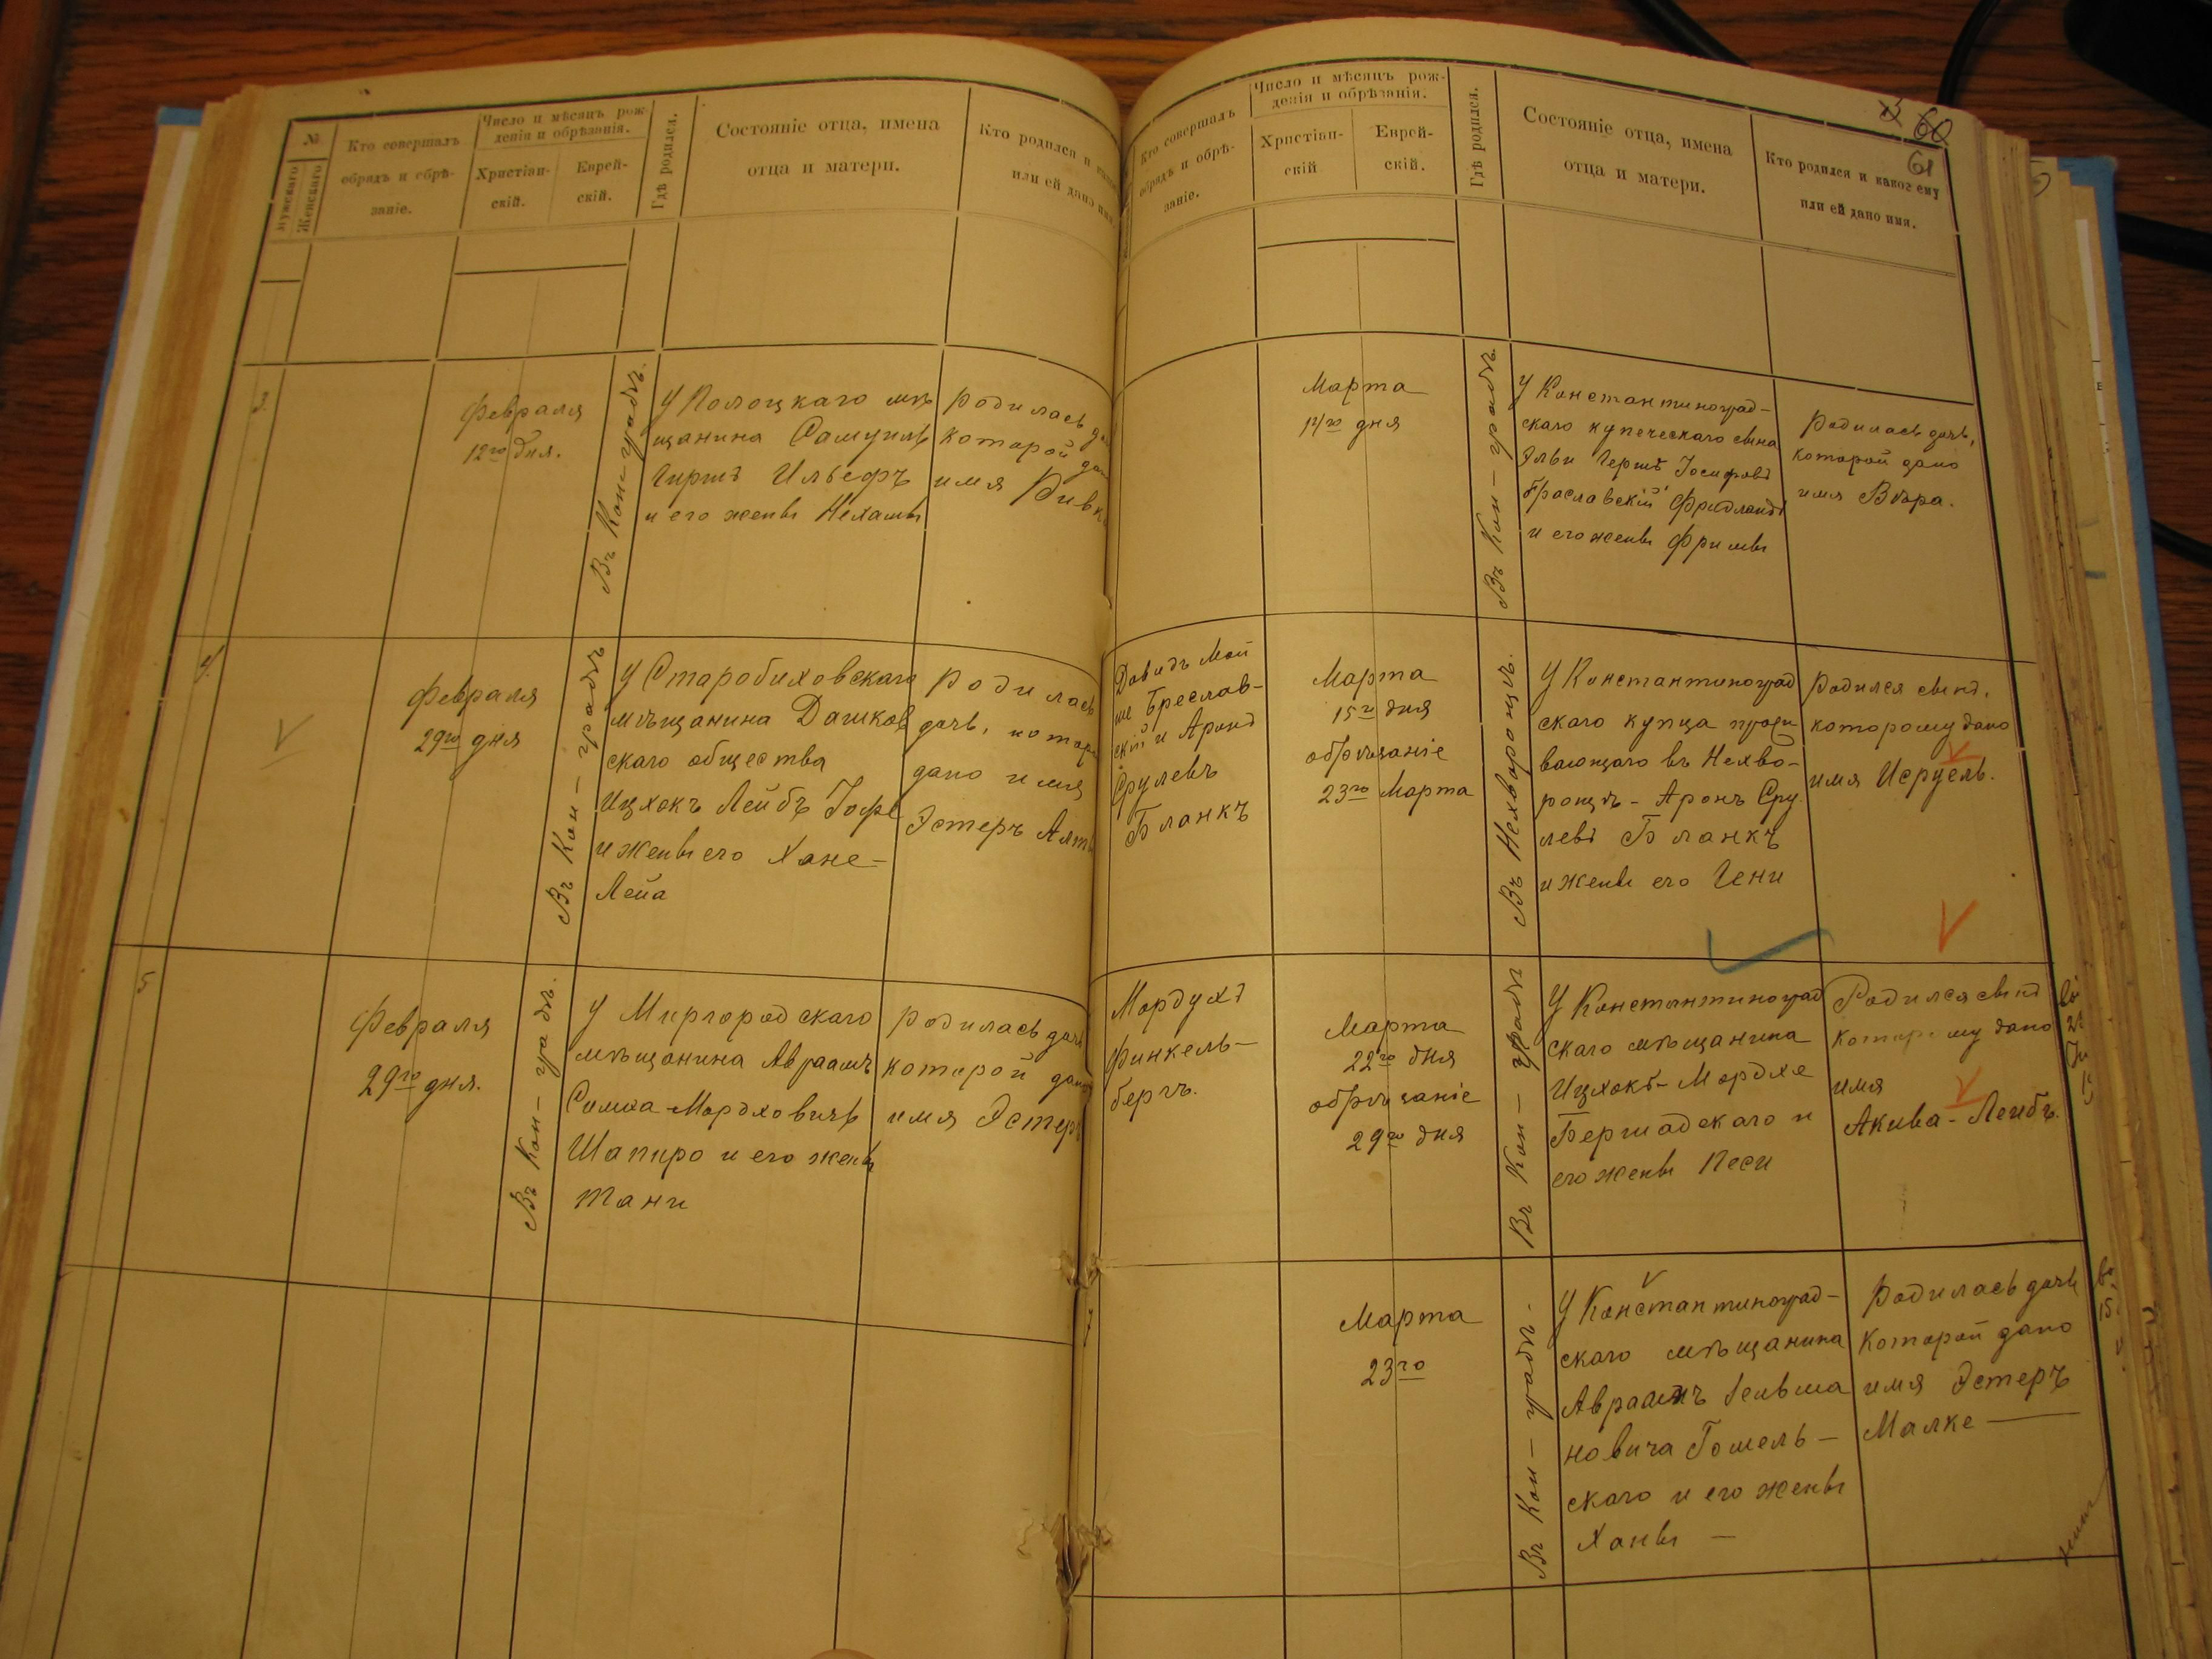 №
Мужскаго
Женскаго
Кто совершалъ
обрядъ и обрѣ-
заніе.
Число и мѣсяцъ рож-
денія и обрѣзанія.
Христіан-
скій.
Еврей-
скій.
Гдѣ родился.
Состояніе отца, имена
отца и матери.
Кто родился и
или ей дано имя
3.
Февраля
12го дня.
Въ Кон-градѣ.
У Полоцкаго мѣ
щанина Самуилъ
Гиршъ Ильефъ
и его жены Нехамы
родилась
которой
имя Ривка
4.
Февраля
29го дня
Въ Кон-градѣ
У Старобиховскаго
мѣщанина Дашков
скаго общества
Ицхокъ Лейбъ Іофе
и жены его Хане-
Лейа
родилась
дочь, котор
дано имя
Эстеръ
5
Февраля
29го дня.
Въ Кон-градѣ.
У Миргородскаго
мѣщанина Авраамъ
Симха-Мордховичъ
Шапиро и его жены
Тани
родилась дочь
которой дано
имя Эстеръ
60
61
Кто совершалъ
обрядъ и обрѣ-
заніе.
Число и мѣсяцъ рож-
денія и обрѣзанія.
Христіан-
скій
Еврей-
скій.
Гдѣ родился.
Состояніе отца, имена
отца и матери.
Кто родился и какое ему
или ей дано имя.
Марта
14го дня
Въ Кон-градѣ.
У Константиноград-
скаго купеческаго сына
Эльи Гершъ Іосифовъ
Браславскій Фридландъ
и его жены Фримы
Родилась дочь,
которой дано
имя Вѣра.
Давидъ Мой
ше Бреслав-
скій и Аронъ
Срулевъ
Бланкъ
Марта
15го дня
обрѣзаніе
23го Марта
Въ Нехворощѣ.
У Константиноград
скаго купца прожи
вающаго въ Нехво-
рощѣ - Аронъ Сру
левъ Бланкъ
и жены его Гени
родился сынъ,
которому дано
имя Исруель.
Мордухъ
Финкель-
бергъ.
Марта
22го дня
обрѣзаніе
29го дня
Въ Кон-градѣ
У Константиноград
скаго мѣщанина
Ицхокъ-Мордхе
Бершадскаго и
его жены Песи
Родился сынъ
которому дано
имя
Акива-Лейбъ.
Марта
23го
Въ Кон-градѣ.
У Константиноград-
скаго мѣщанина
Авраамъ
новича Гомель-
скаго и его жены
Ханы —
Родилась дочь
которой дано
имя Эстеръ
Малке —